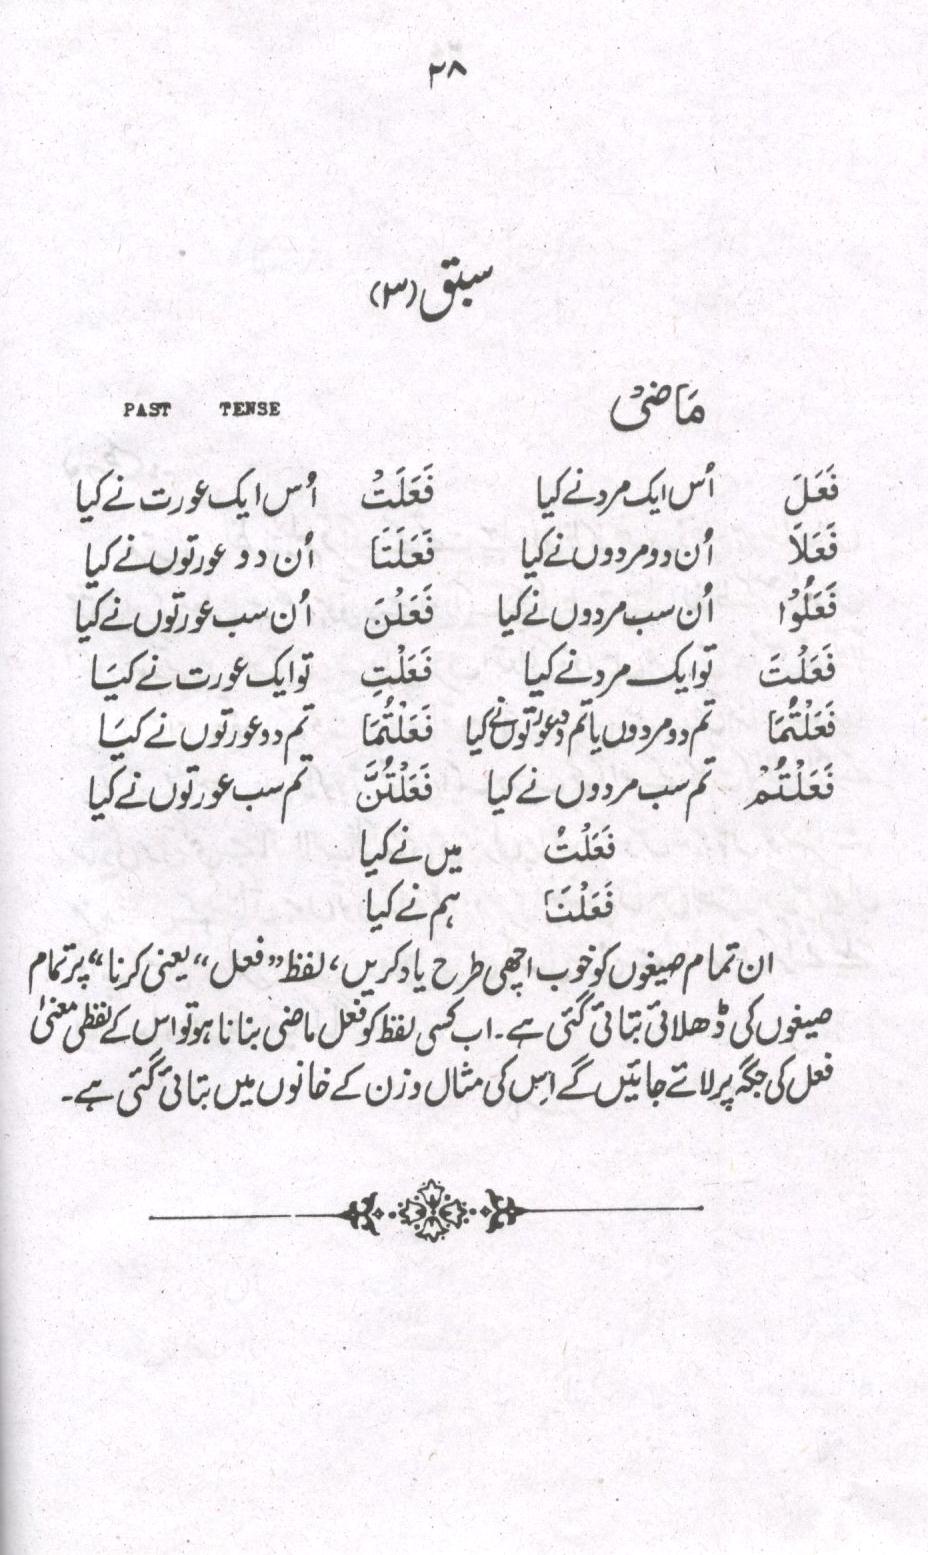 ۲۸
سبق (۳)
مَاضِیْ PAST TENSE
فَعَلَ اُس ایک مرد نے کیا فَعَلَتْ اُس ایک عورت نے کیا
فَعَلَا اُن دو مردوں نے کیا فَعَلَتَا اُن دو عورتوں نے کیا
فَعَلُوْا اُن سب مردوں نے کیا فَعَلْنَ اُن سب عورتوں نے کیا
فَعَلْتَ تو ایک مرد نے کیا فَعَلْتِ تو ایک عورت نے کیَا
فَعَلْتُمَا تم دو مردوں یا تم دو عورتوں نے کیا فَعَلْتُمَا تم دو عورتوں نے کیَا
فَعَلْتُمْ تم سب مردوں نے کیا فَعَلْتُنَّ تم سب عورتوں نے کیا
فَعَلْتُ میں نے کیا
فَعَلْنَا ہم نے کیا
ان تمام صیغوں کو خوب اچھی طرح یاد کریں، لفظ ”فعل“ یعنی کرنا“ پر تمام
صیغوں کی ڈھلائی بتائی گئی ہے۔ اب کسی لفظ کو فعل ماضی بنانا ہو تو اس کے لفظی معنیٰ
فعل کی جگہ پر لائے جائیں گے اس کی مثال وزن کے خانوں میں بتائی گئی ہے۔